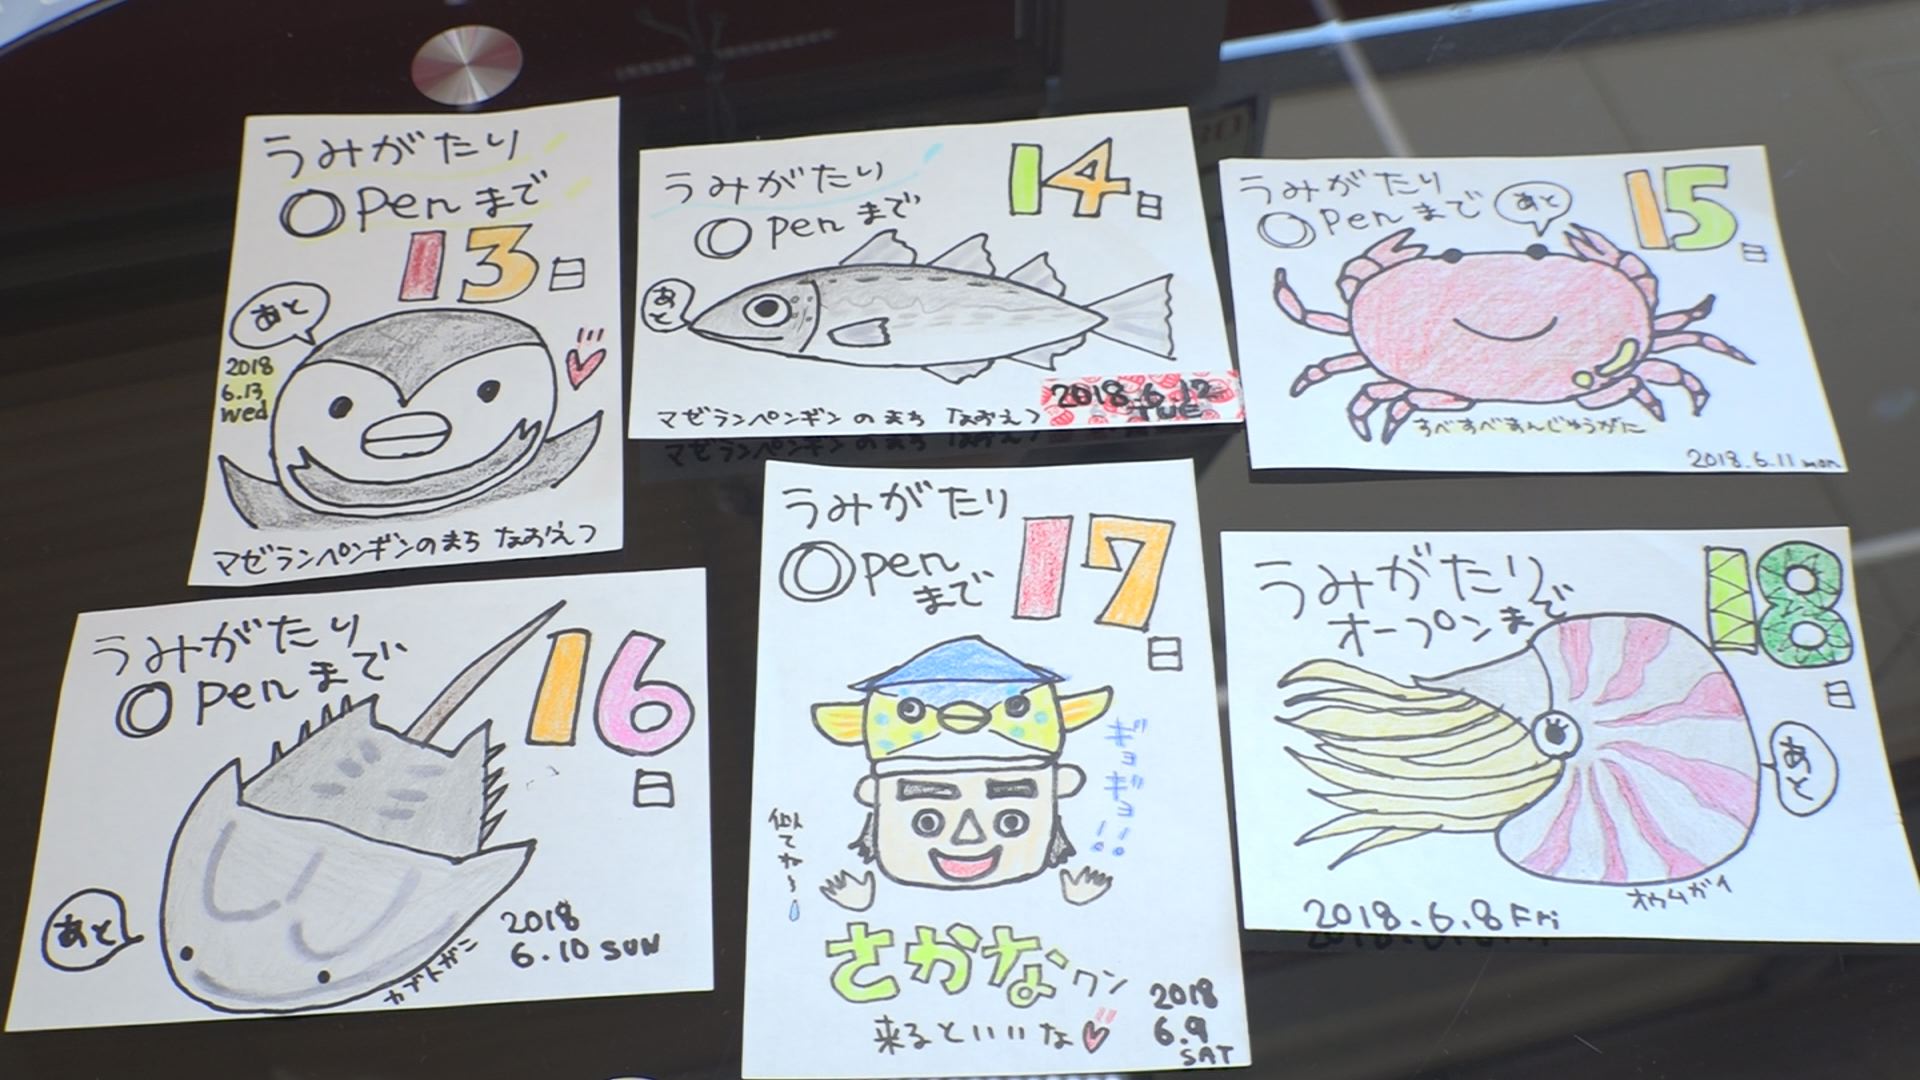 うみがたり
Openまで
13日
あと
2018
6.13
wed
マゼランペンギンのまち なおえつ
うみがたり
Open まで
14日
あと
マゼランペンギンのまち なおえつ
2018.6.12
TUE
うみがたり
Open まで
あと
15日
すべすべまんじゅうがに
2018.6.11 mon
うみがたり
Open まで
16日
あと
カブトガニ
2018
6.10 SUN
うみがたり
Open
まで
17日
ギョギョ!!
似てね〜
さかなクン
来るといいな
2018
6.9
SAT
うみがたり
オープンまで
18日
あと
オウムガイ
2018.6.8 Fri